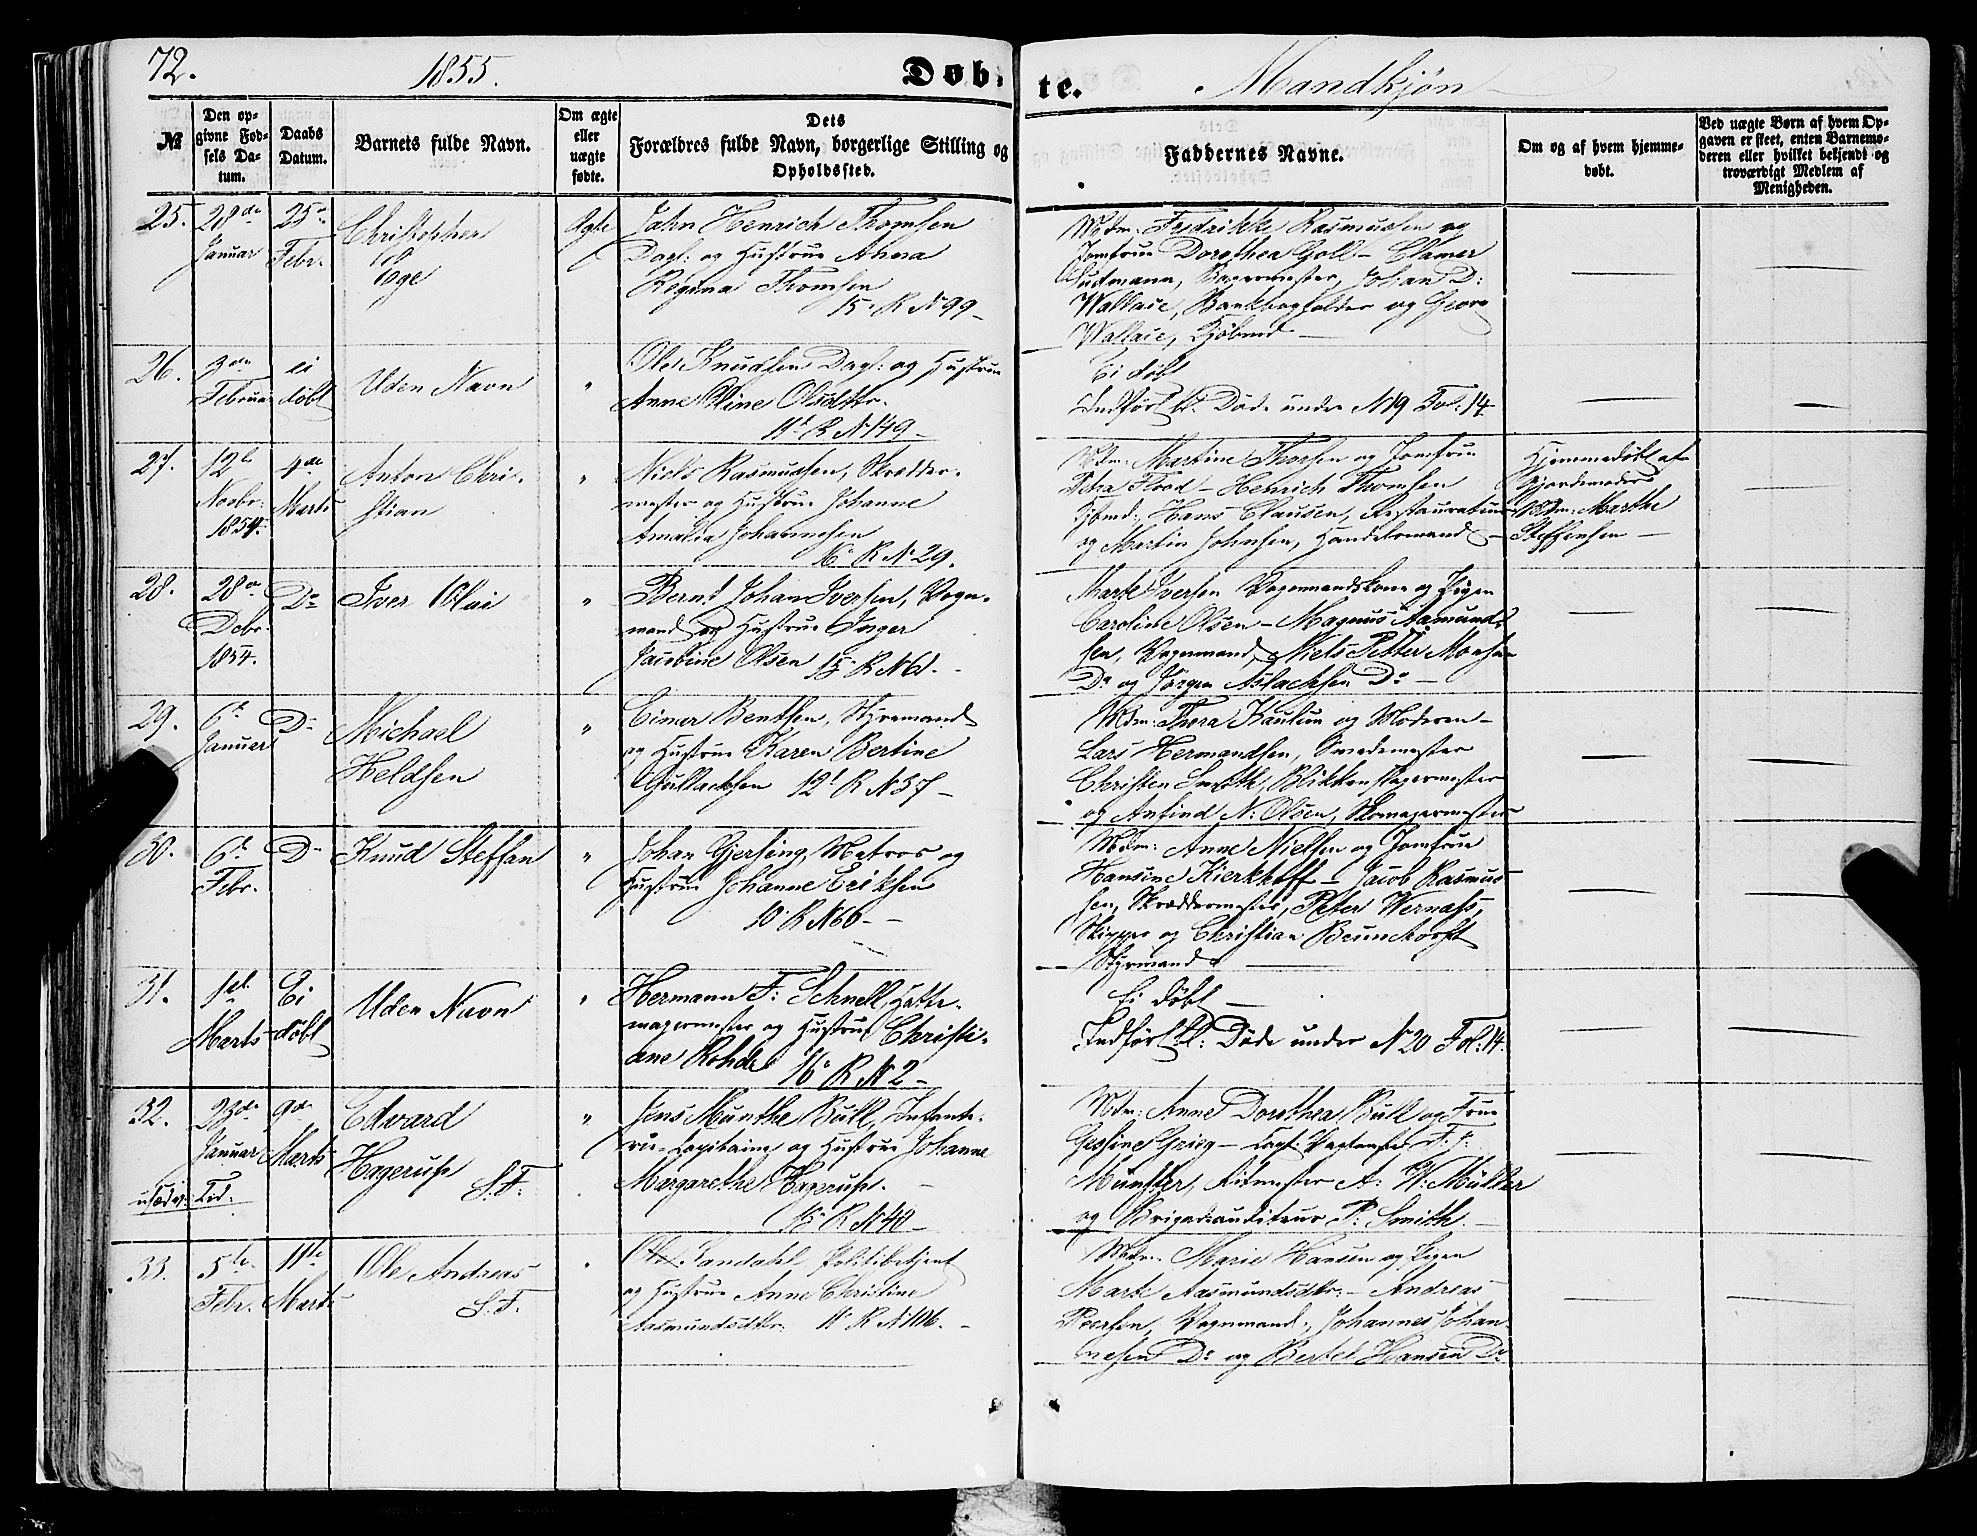 72.
1855.
Døb-
te.
Mandkjøn
№
Den op-
givne Fød-
sels Da-
tum.
Daabs
Datum.
Barnets fulde Navn.
Om ægte
eller
uægte
fødte.
Dets
Forældres fulde Navn, borgerlige Stilling og
Opholdssted.
Faddernes Navne.
Om og af hvem hjemme-
døbt.
Ved uægte Børn af hvem Op-
gaven er skeet, enten Barnemo-
deren eller hvilket bekjendt og
troværdigt Medlem af
Menigheden.
25.
28de
Januar
25de
Febr.
Christopher
Aage
Ægte
Jahn Henrich Thomsen
Dagl: og Hustrue Anna
Regina Thomsen
15. R N 99 -
Mdm: Fredrikke Rasmussen og
Jomfrue Dorothea Goll - Clamer
Bagermester, Johan D:
Wallace, Bankbogholder og Georg
Wallace, Kjøbmd
26.
3die
Februar
ei
døbt
Uden Navn
"
Ole Knudsen Dagl: og Hustrue
Anne Oline Olsdtr.
11t R N 149 -
Ei døbt
Indført bl. Døde under N 19 Fol: 14
27.
12te
Novbr.
1854.
4de
Marts
Anton Chri-
stian
"
Niels Rasmussen, Skrædder-
mester og Hustrue Johanne
Amalia Johannesen
16. R N 29.
Mdm: Martine Thorsen og Jomfrue
Petra Flood - Henrich Thomsen
Kjbmd: Hans Clausen, Restaurateur
og Martin Johnsen, Handelsmand
Hjemmedøbt af
Gjordemoder
Mdm: Marthe
Steffensen -
28.
28de
Decbr.
1854.
Do
Iver Olai
"
Bernt Johan Iversen, Vogn-
mand og Hustrue Inger
Jacobine Olsen 15. R N 61. -
Marte Iversen Vognmandskone og Pigen
Caroline Olsen - Magnus Aamund-
sen, Vognmand, Niels Petter Monsen
Do og Jørgen Aslachsen Do -
29.
6te
Januar
Do
Michael
Heldsen
"
Einer Bentsen, Styrmand
og Hustrue Karen Bertine
Gullachsen 12t R N 57 -
Mdm: Thora Kaulum og Moderen -
Lars Hermandsen, Smedemester
Christen Smith, Blikkenslagermester
og Anfind N. Olsen, Skomagermester
30.
6te
Febr.
Do
Knud Steffan
"
Johan Gjersing, Matros og
Hustrue Johanne Eriksen
10. R N 66 -
Mdm: Anne Nielsen og Jomfrue
Hansine Kierkhoff - Jacob Rasmus-
sen, Skræddermester, Peter Wernass,
Skipper og Christian Brunchorst
Styrmand
31.
1ste
Marts
Ei
døbt
Uden Navn
"
Hermann F: Schnell, Hatte-
magermester og Hustrue Christi-
ane Rohde 16. R N 2 -
Ei døbt -
Indført bl: Døde under N 20 Fol: 14.
32.
23de
Januar
9de
Marts
Edvard
Hagerup
S. F.
"
Jens Munthe Bull, Infante-
rie-Capitaine og Hustrue Johanne
Margarethe Hagerup. -
15. R N 40 -
Mdm: Anne Dorothea Bull og Frue
Gesine Grieg - Capt: F. J:
Münster, Ritmester A: W: Müller
og Brigadeauditeur P. Smith -
33.
5te
Febr.
11te
Marts
Ole Andreas
S. F.
"
Ole Sandahl Politibetjent
og Hustrue Anne Christine
Aasmundsdtr. 11. R N 106. -
Mdm: Marie Hansen og Pigen
Marte Aasmundsdtr. - Andreas
Peersen, Vognmand, Johannes Johan-
nesen Do og Bertel Hansen Do